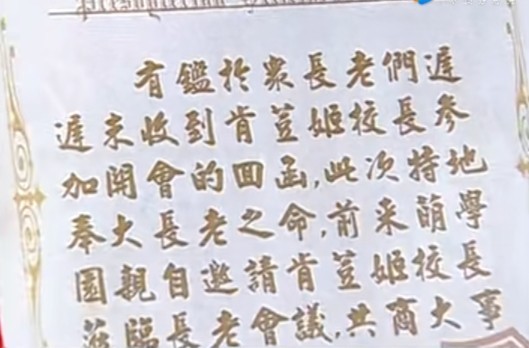 有鑑於眾長老們遲
遲未收到肯荳姬校長參
加開會的回函,此次特地
奉大長老之命,前來萌學
園親自邀請肯荳姬校長
蒞臨長老會議,共商大事